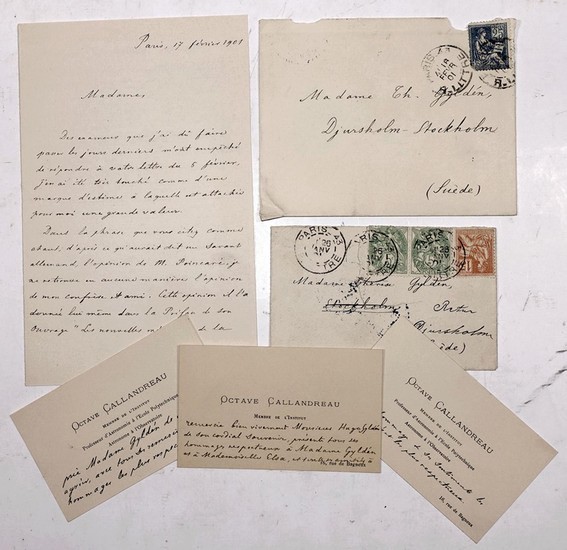 Paris, 17 février 1901
Madame,
Des examens que j'ai dû faire
passer les jours derniers m'ont empêché
de répondre à votre lettre du 5 février.
J'en ai été très touché comme d'une
marque d'estime à laquelle est attachée
pour moi une grande valeur.
Dans la phrase que vous citez comme
étant, d'après ce qu'aurait dit un savant
allemand, l'opinion de M. Poincaré, je
ne retrouve en aucune manière l'opinion
de mon confrère et ami. Cette opinion il l'a
donnée lui même dans la Préface de son
Ouvrage "Les nouvelles de la
PARIS
FEVR
01
Madame Th. Gyldén,
Djursholm-Stockholm
(Suède)
PARIS
26
JANV
PARIS
26
JANV
Madame Gyldén,
Stockholm
Djursholm
(Suède)
OCTAVE CALLANDREAU
MEMBRE DE L'INSTITUT
Professeur d'Astronomie à l'École Polytechnique
Astronome à l'Observatoire
prie Madame Gyldén de
agréer, avec tous ses remerciements
hommages les plus
OCTAVE CALLANDREAU
MEMBRE DE L'INSTITUT
remercie bien vivement Monsieur Hugo Gyldén
de son cordial souvenir, présente tous ses
hommages respectueux à Madame Gyldén
et à Mademoiselle Elsa, et
16, rue de Bagneux
OCTAVE CALLANDREAU
MEMBRE DE L'INSTITUT
Professeur d'Astronomie à l'École Polytechnique
Astronome à l'Observatoire
de ses sentiments les
plus respectueux
16, rue de Bagneux